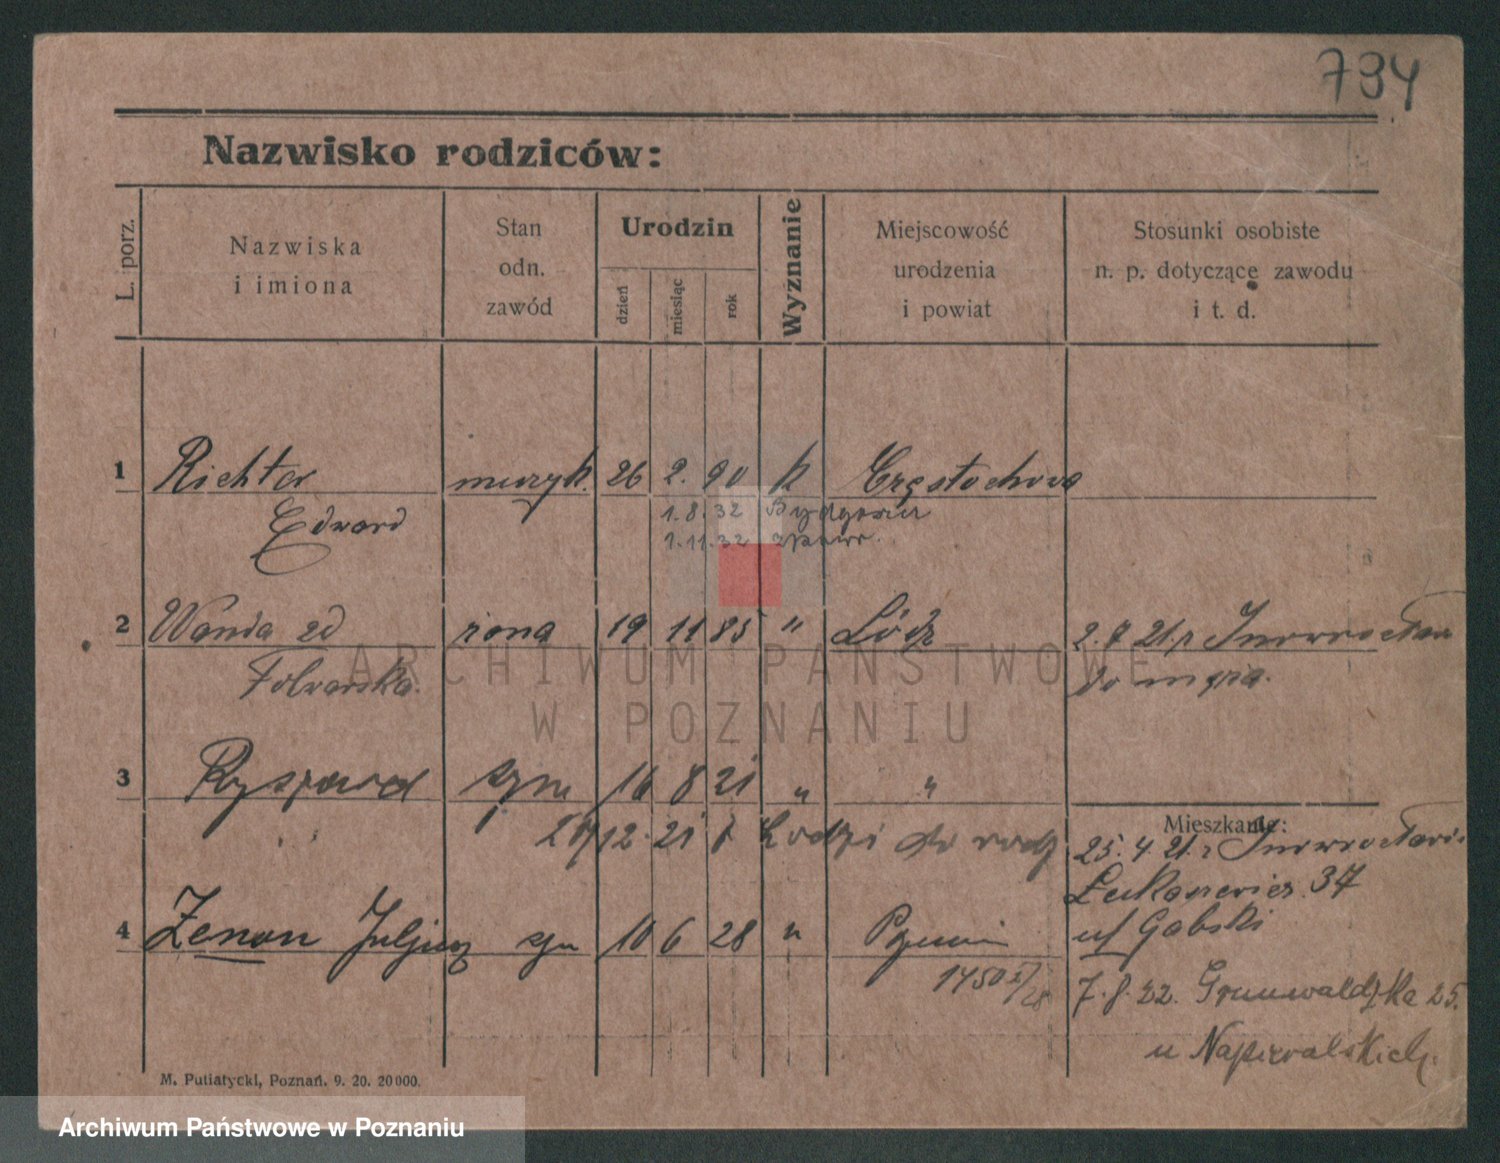 794
Nazwisko rodziców:
L. porz.
Nazwiska
i imiona
Stan
odn.
zawód
Urodzin
dzień
miesiąc
rok
Wyznanie
Miejscowość
urodzenia
i powiat
Stosunki osobiste
n. p. dotyczące zawodu
i t. d.
1 Richter muzyk. 26 2. 90 k Częstochowa
Edward 1.8.32 Bydgoszcz
1.11.32
2 Wanda zd żona 19 11 85 " Łódź 2. 21. z Inowrocławia
Folwarska. do męża.
ARCHIWUM PAŃSTWOWE
W POZNANIU
3 Ryszard syn 16 8 21 " "
12. 21 z Łodzi do rodz
Mieszkanie:
25. 4. 21. z Inowrocławia
Łukaszewicz. 37
4 Zenon Juljusz syn 10 6 28 " Poznań u/ Gabski
1450 /28
7. 8. 22. Grunwaldzka 25.
u Napieralskich.
M. Putiatycki, Poznań. 9. 20. 20000.
Archiwum Państwowe w Poznaniu